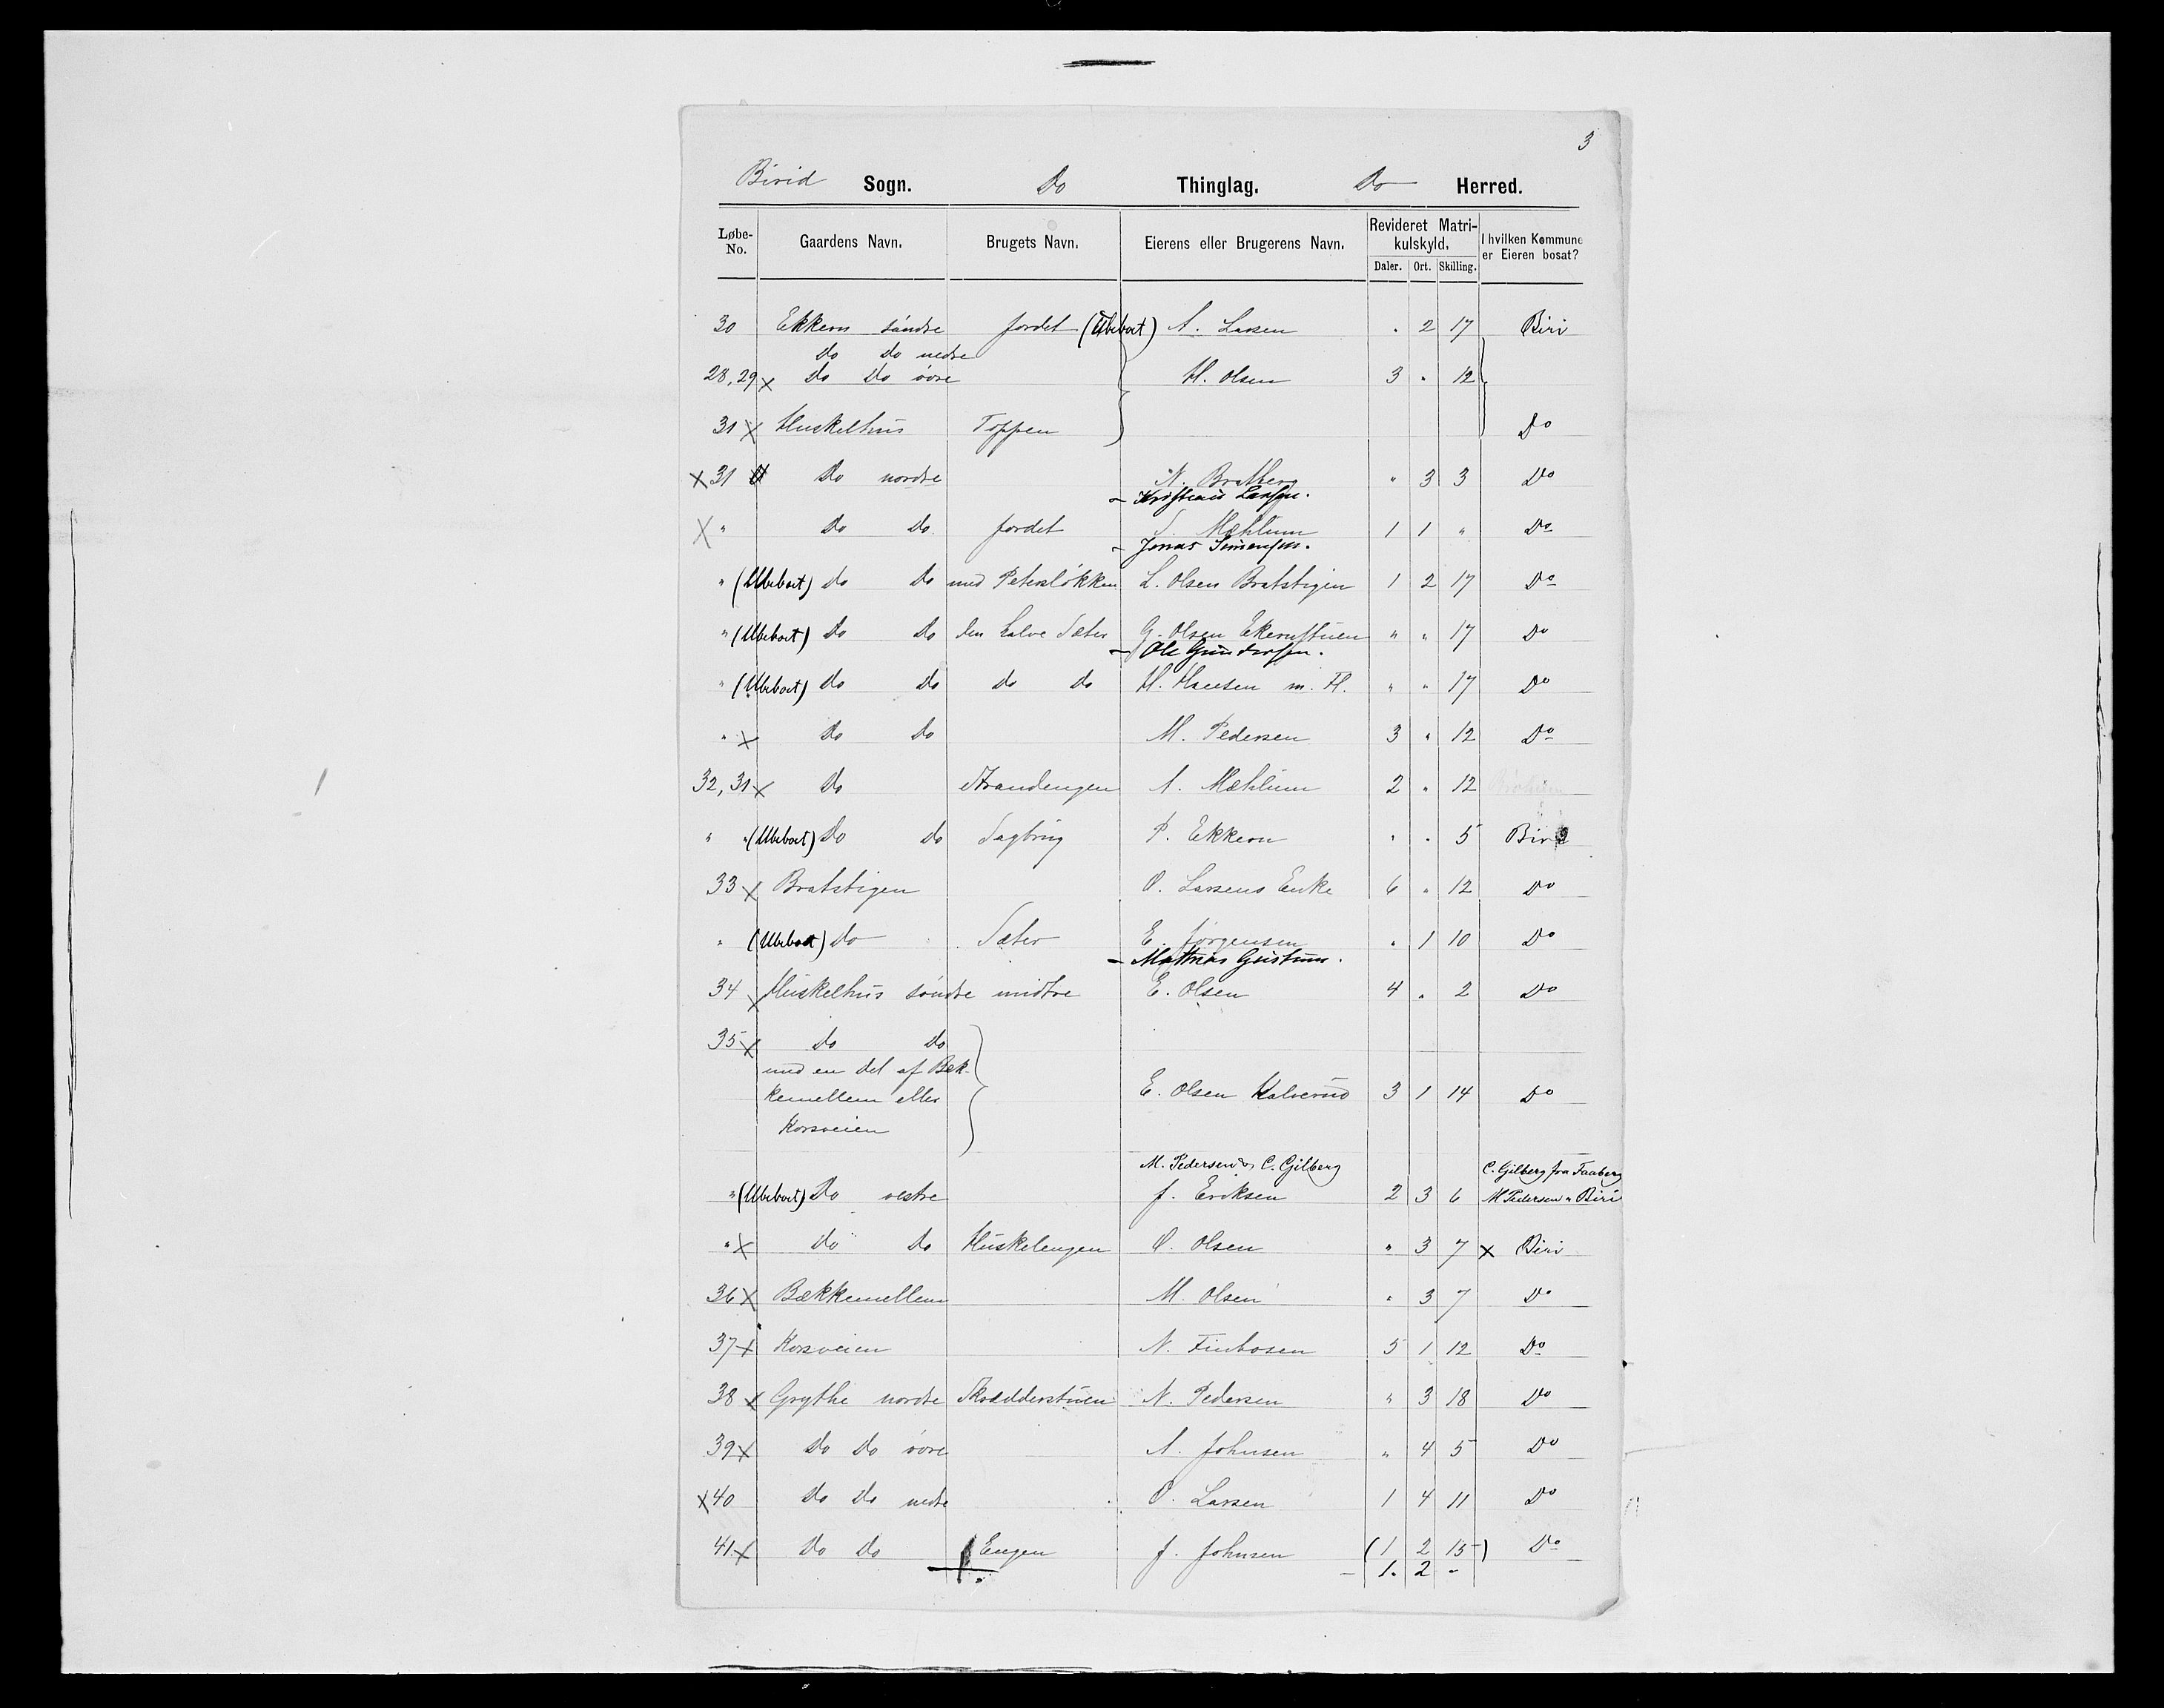 3
Birid Sogn. Do Thinglag. Do Herred.
Løbe-No. Gaardens Navn. Brugets Navn. Eierens eller Brugerens Navn. Revideret Matrikulskyld. I hvilken Kommune er Eieren bosat?
Daler. Ort. Skilling.
30 Ekkern søndre jordet (Ubeboet) A. Larsen " 2 17 Biri
do do nedre
28, 29 x do do øvre H. Olsen 3 " 12
31 x Huskelhus Toppen Do
x 31 do nordre N. Bratberg " 3 3 Do
– Kristians Larsen.
x " do do jordet S. Mæhlum 1 1 " Do
– Jonas Simensen.
" (Ubeboet) do do med Petersløkken L. Olsen Bratstigen 1 2 17 Do
" (Ubeboet) do do den halve Sæter G. Olsen Ekernstuen " " 17 Do
– Ole Gundersen.
" (Ubeboet) do do do do H. Hansen m. Fl. " " 17 Do
" x do do M. Pedersen 3 " 12 Do
32, 31 x do Strandengen A. Mæhlum 2 " 12
" " (Ubeboet) do do Sagbrug P. Ekkern " " 5 Biri
33 x Bratstigen O. Larsens Enke 6 " 12 Do
" (Ubeboet) do Sæter E. Jørgensen " 1 10 Do
– Mathias Gustum.
34 x Huskelhus søndre midtre E. Olsen 4 " 2 Do
35 x do do
med en del af Bæk-
kemellem eller E. Olsen Kalverud 3 1 14 Do
Korsveien
M. Pedersen & C. Gilberg C. Gilberg fra Faaberg
" (Ubeboet) Do vestre J. Eriksen 2 3 6 M Pedersen " Biri
" x do do Huskelengen O. Olsen " 3 7 x Biri
36 x Bækkemellem M. Olsen " 3 7 Do
37 x Korsveien N. Finbosen 5 1 12 Do
38 x Grythe nordre Skrædderstuen N. Pedersen " 3 18 Do
39 x do do øvre A. Johnsen " 4 5 Do
x 40 do do nedre O. Larsen 1 4 11 Do
41 x do do Engen J. Johnsen (1 2 15) Do
– 1. 2 "